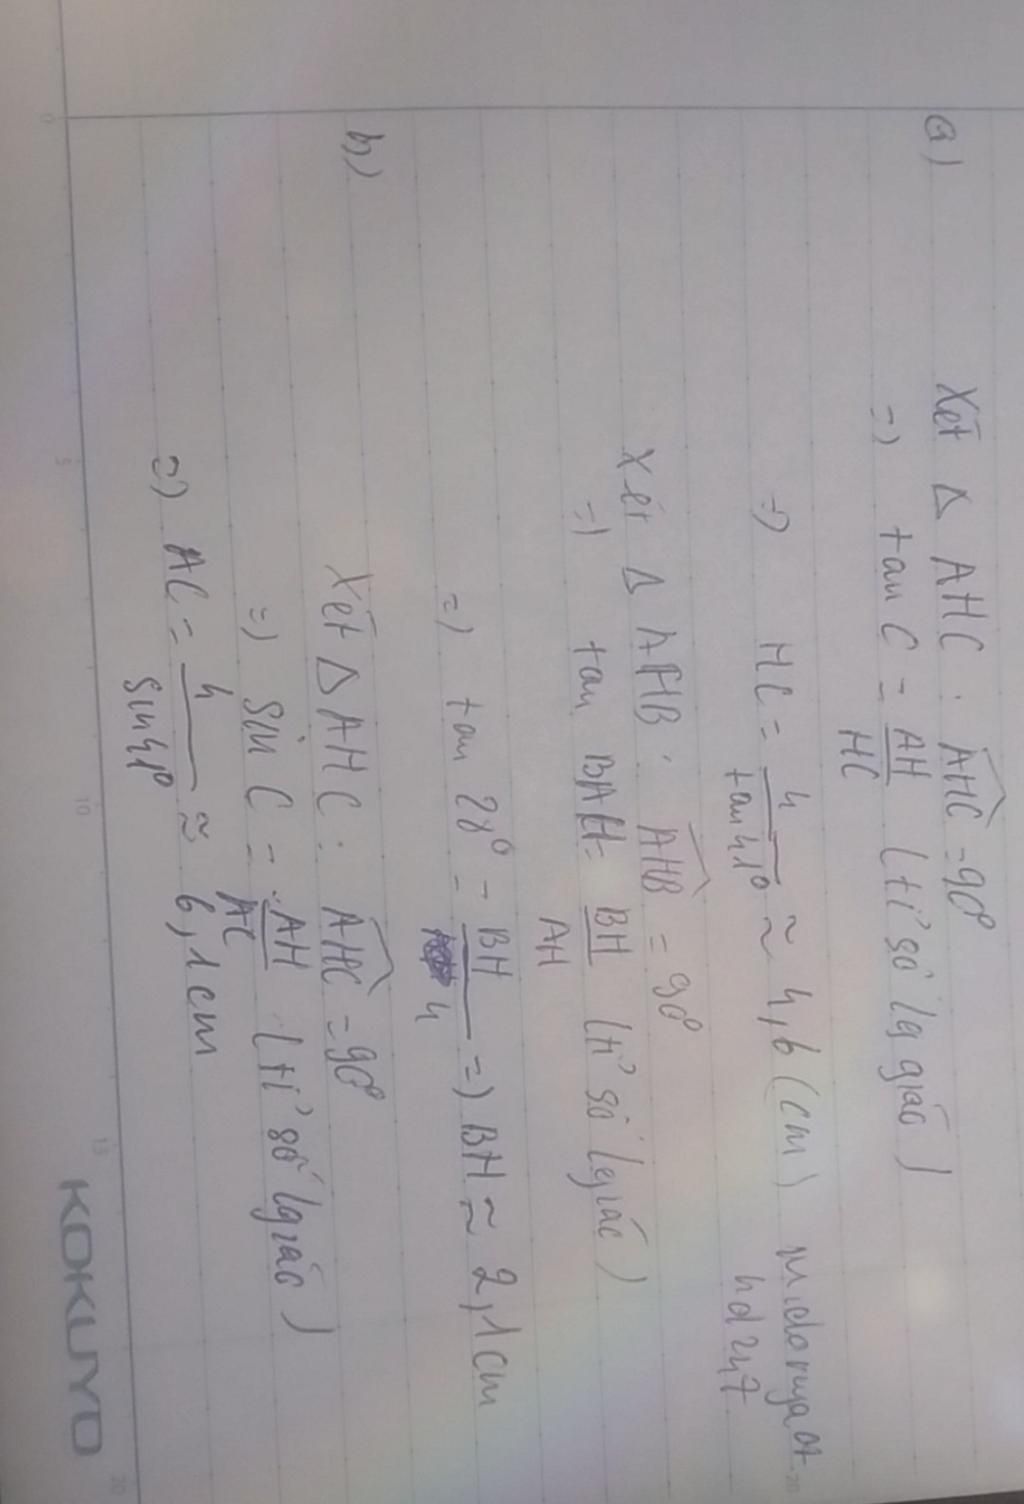 a) Xét Δ AHC : AHC = 90°
=) tan C = AH/HC (tỉ số lg giác)
=) HC = 4/tan41° ≈ 4,6 (cm)
midoruyaot
hd247
Xét Δ AHB : AHB = 90°
=) tan BAH = BH/AH (tỉ số lgiác)
=) tan 28° = BH/4 =) BH ≈ 2,1cm
b) Xét Δ AHC : AHC = 90°
=) Sin C = AH/AC (tỉ số lgiác)
=) AC = 4/sin41° ≈ 6,1cm
0
5
10
15
20
KOKUYO